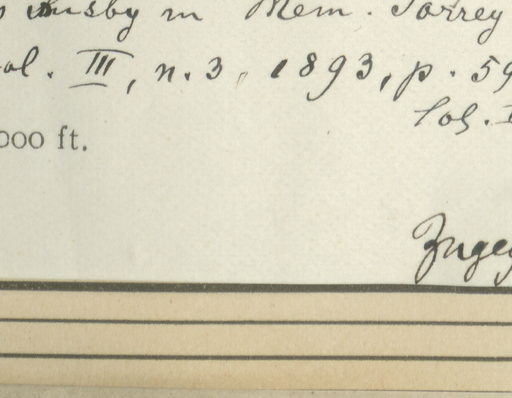 Busby in Mem. Torrey
ol. III, n. 3, 1893, p. 59
000 ft.